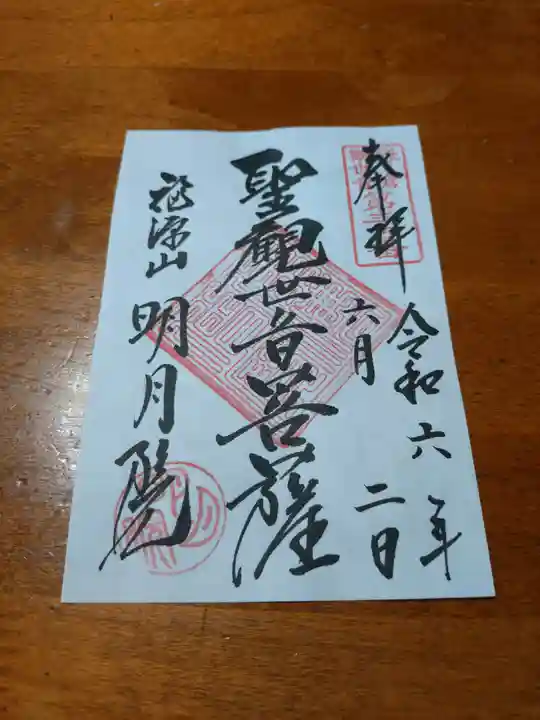 奉拝
令和六年
六月二日
聖観世音菩薩
福源山
明月院